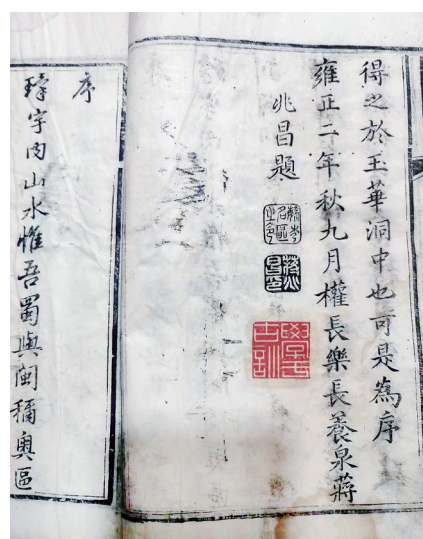 得之於玉華洞中也可是為序
雍正二年秋九月權長樂長養泉蔣
兆昌題
序
宇内山水惟吾蜀與閩稱奧區